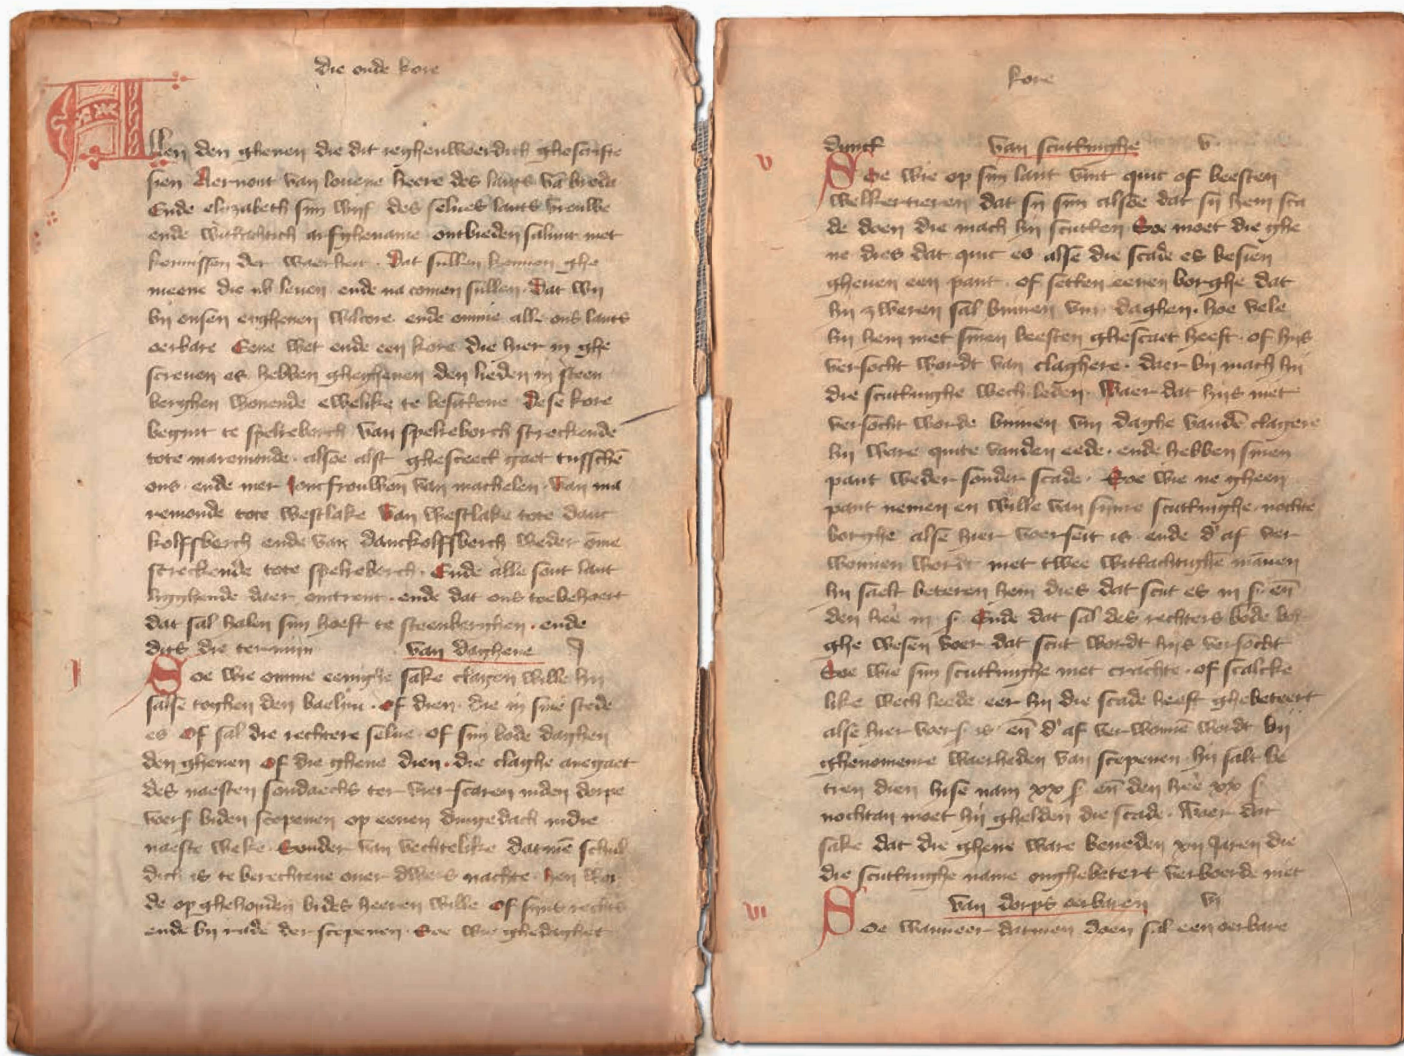 die oude kore
Allen den ghenen die dit ieghenwoerdich ghescrifte
sien Aernout van louene heere des lants vā breda
Ende elizabeth sijn wijf des selues lants vrouwe
ende wittachtich arfghename ontbieden saluut met
kennissen der waerheit. Dat sullen kennen ghe
meene die nv leuen. ende na comen sullen. Dat wij
bij onsen eyghenen wilcore. ende omme alle ons lants
oerbare Eene wet ende een kore die hier in ghe
screuen es. hebben ghegheuen den lieden in steen
berghen wonende ewelike te besittene. Dese kore
beghint te spelreborch Van spelreborch streckende
tote maremonde. alsoe alst ghesceet gaet tusschē
ons. ende mer Joncfrouwen van machelen. Van ma
remonde tote westlake Van westlake tote danc
kolfsberch ende van danckolfsberch weder ōme
streckende tote spelreborch. Ende alle sout lant
ligghende daer omtrent. ende dat ons toebehoert
dat sal halen sijn hoeft te steenberghen. ende
dits die termijn van daghene J
I Soe wie omme eenighe sake claghen wille hij
salse toghen den baeliu. of dien. die in sine stede
es Of sal die rechtere selue. of sijn bode daghen
den ghenen Of die ghene dien. die claghe anegaet
des naesten sondaechs ter vierscaren inden dorpe
voers biden scepenen op eenen dingedach indie
naeste weke. Sonder van vechtelike datmē schul
dich is te berechtene ouer dwers nachte. hen wor
de op ghehouden bides heeren wille Of sijns rechts
ende bij rade der scepenen. Soe wie ghedaghet
kore
van scuttinghe v
v Soe wie op sijn lant vint quic of beesten
welkertieren dat sij sijn alsoe dat sij hem sca
de doen die mach hij scutten Soe moet die ghe
ne dies dat quic es alse die scade es besien
gheuen een pant. of setten eenen borghe dat
hij zweren sal binnen viij. daghen. hoe vele
hij hem met sinen beesten ghescaet heeft. of hijs
versocht wordt van claghere. daer bij mach hij
die scuttinghe wech leden. Waer dat hijs niet
versocht worde binnen viij daghe vandē clagere
hij ware quite vanden eede. ende hebben sinen
pant weder sonder scade. Soe wie ne gheen
pant nemen en wille van sijnre scuttinghe. nochte
borghe alse hier voerseit is. ende d'af ver
wonnen wordt met twee wittachtighē mānen
hij saelt beteren hem dies dat scut es iij s. eñ
den hēe iij s. Ende dat sal des rechters bode bor
ghe wesen voer dat scut wordt hijs versocht
Soe wie sijn scuttinghe met crachte. of scalcke
like wech leede eer hij die scade heeft ghebetert
alse hier voers is eñ d'af verwonnē wordt bij
ghenomenre waerheden van scepenen. hij salt be
tren dien hise nam xx s eñ den hēe xx s
nochtan moet hij ghelden die scade. Waer dat
sake dat die ghene ware beneden xij Jaren die
die scuttinghe name onghebetert verboerde niet
van dorps oerbaren vi
vi Soe wanneer datmen doen sal een oerbare